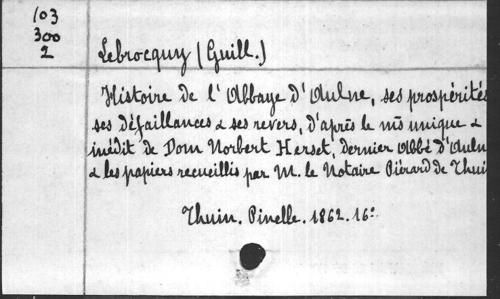 103
300
2
Lebrocquy (Guill.)
Histoire de l'Abbaye d'Aulne, ses prospérités
ses défaillances & ses revers, d'après le m̄s unique &
inédit de Dom Norbert Herset, dernier Abbé d'Auln
& les papiers recueillis par M. le Notaire Piérard de Thui
Thuin. Pinelle. 1862. 16°.